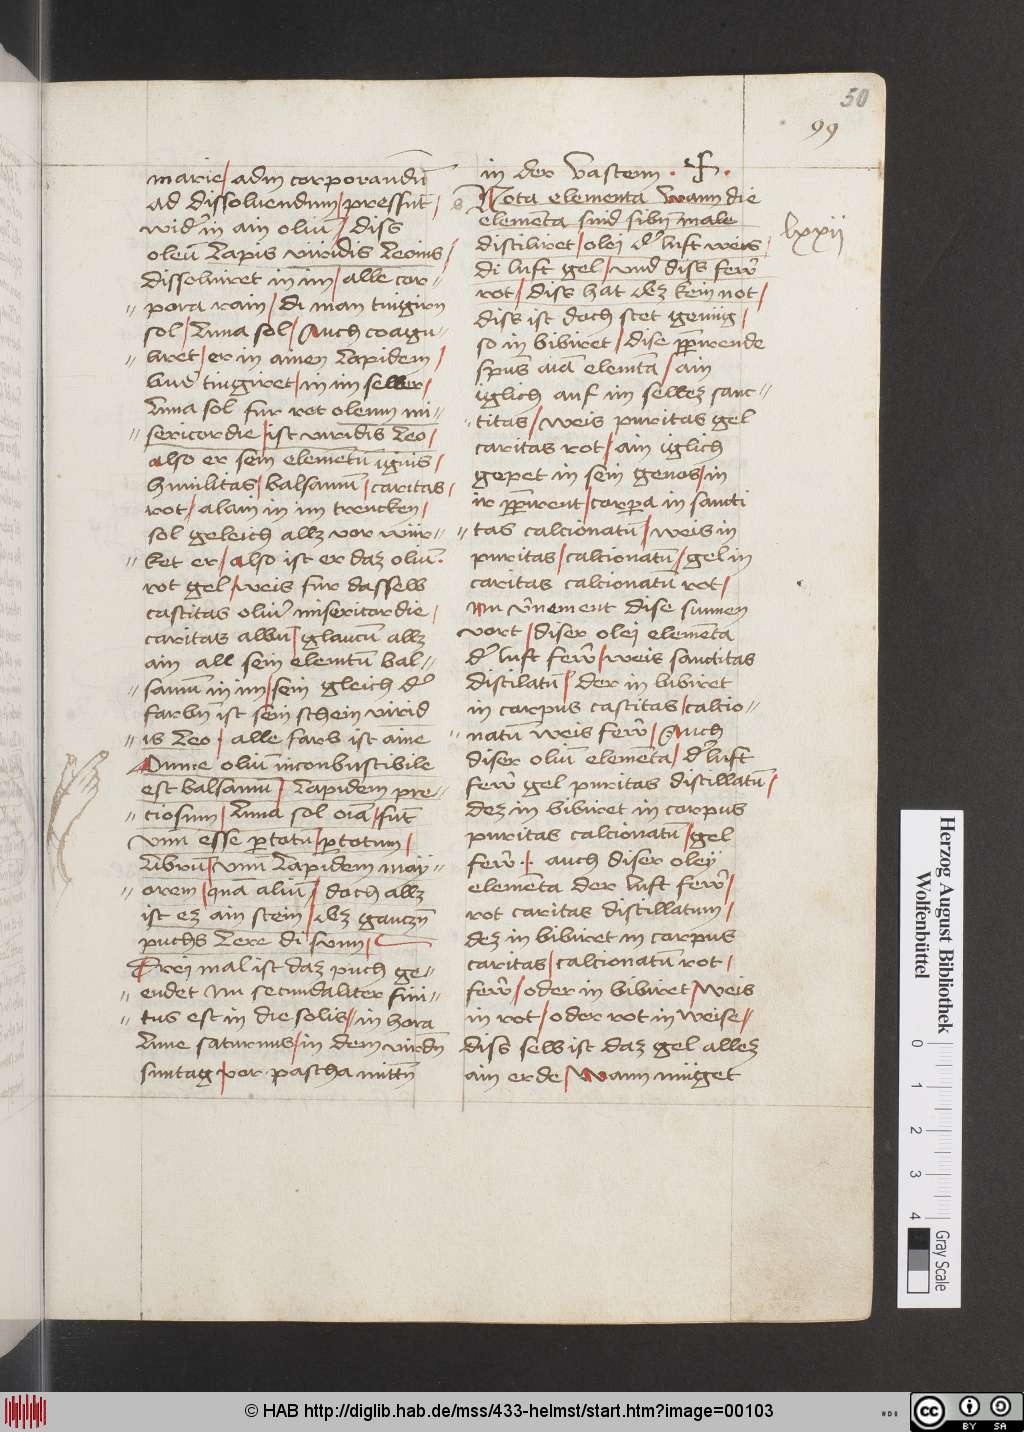 50
99
marie / adm corporandū
ad dissoluendum / pressūt /
wid' in ain oliū / diss
oleū Lapis viridis Leonis /
dissoluiret in im / alle cor-
pora rain / di man tingirn
sol / Luna sol / Auch coagu-
liret / er in ainen Lapidem /
vnd tingiret / in im selber /
Luna sol fur rot oleum mi-
sericordie / ist viridis Leo /
also er sein elemētū ignis /
humilitas / balsamū / caritas /
rot / alain in im trucken /
sol geleich allz vor wur-
ket er / also ist er daz oliū.
rot gel / weis fur dasselb
castitas oliū misericordie /
caritas albū / glaucū allz
ain all sein elemtū bal-
samū in im / sein gleich d'
farbn ist sein schein virid
is Leo / alle farb ist aine
Nunc oliū inconbustibile
est balsamū / Lapidem pre-
ciosum / Luna sol oīa / sūt
vnū esse ꝑ totū / ꝑ totum /
Librū / vnū Lapidem may-
orem / qua aliū / doch allz
ist ez ain stein / dez gantzn
puchs Lere di sum /
Drei mal ist daz puch ge-
endet Nu secundaliter fini-
tus est in die solis / in hora
Lune saturnus / in dem virdn
suntag / vor pascha mittn
in der vastenn .
Nota elementa wann die
elemēta sind sibn male
distiliret / olei d' luft weis /
di luft gel / vnd diss fewr
rot / diss hat dez kein not /
diss ist doch stet genug /
so in bibiret / dise
spūs aīa elemēta / ain
iglich auf im selbez sanc-
titas / weis puritas gel
caritas rot / ain iglich
gepet in sein genos / in
corpora in sancti
tas calcionatū / weis in
puritas / calcionatū / gel in
caritas calcionatū rot /
Nu v'nement dise sinnen
vort / diser olei elemēta
d' luft fewr / weis sanctitas
distilatū / der in bibiret
in corpus castitas / calcio-
natū weis fewr / Auch
diser oliū elemēta / d' luft
fewr gel puritas distillatū /
dez in bibiret in corpus
puritas calcionatū / gel
fewr . auch diser oley
elemēta der luft fewr /
rot caritas distillatum /
dez in bibiret in corpus
caritas / calcionatū rot /
fewr / oder in bibiret / weis
in rot / oder rot in weise
diss selb ist daz gel allez
ain erde / Wann muget
lxxii
Herzog August Bibliothek
Wolfenbüttel
0 1 2 3 4
Gray Scale
© HAB http://diglib.hab.de/mss/433-helmst/start.htm?image=00103
cc BY SA